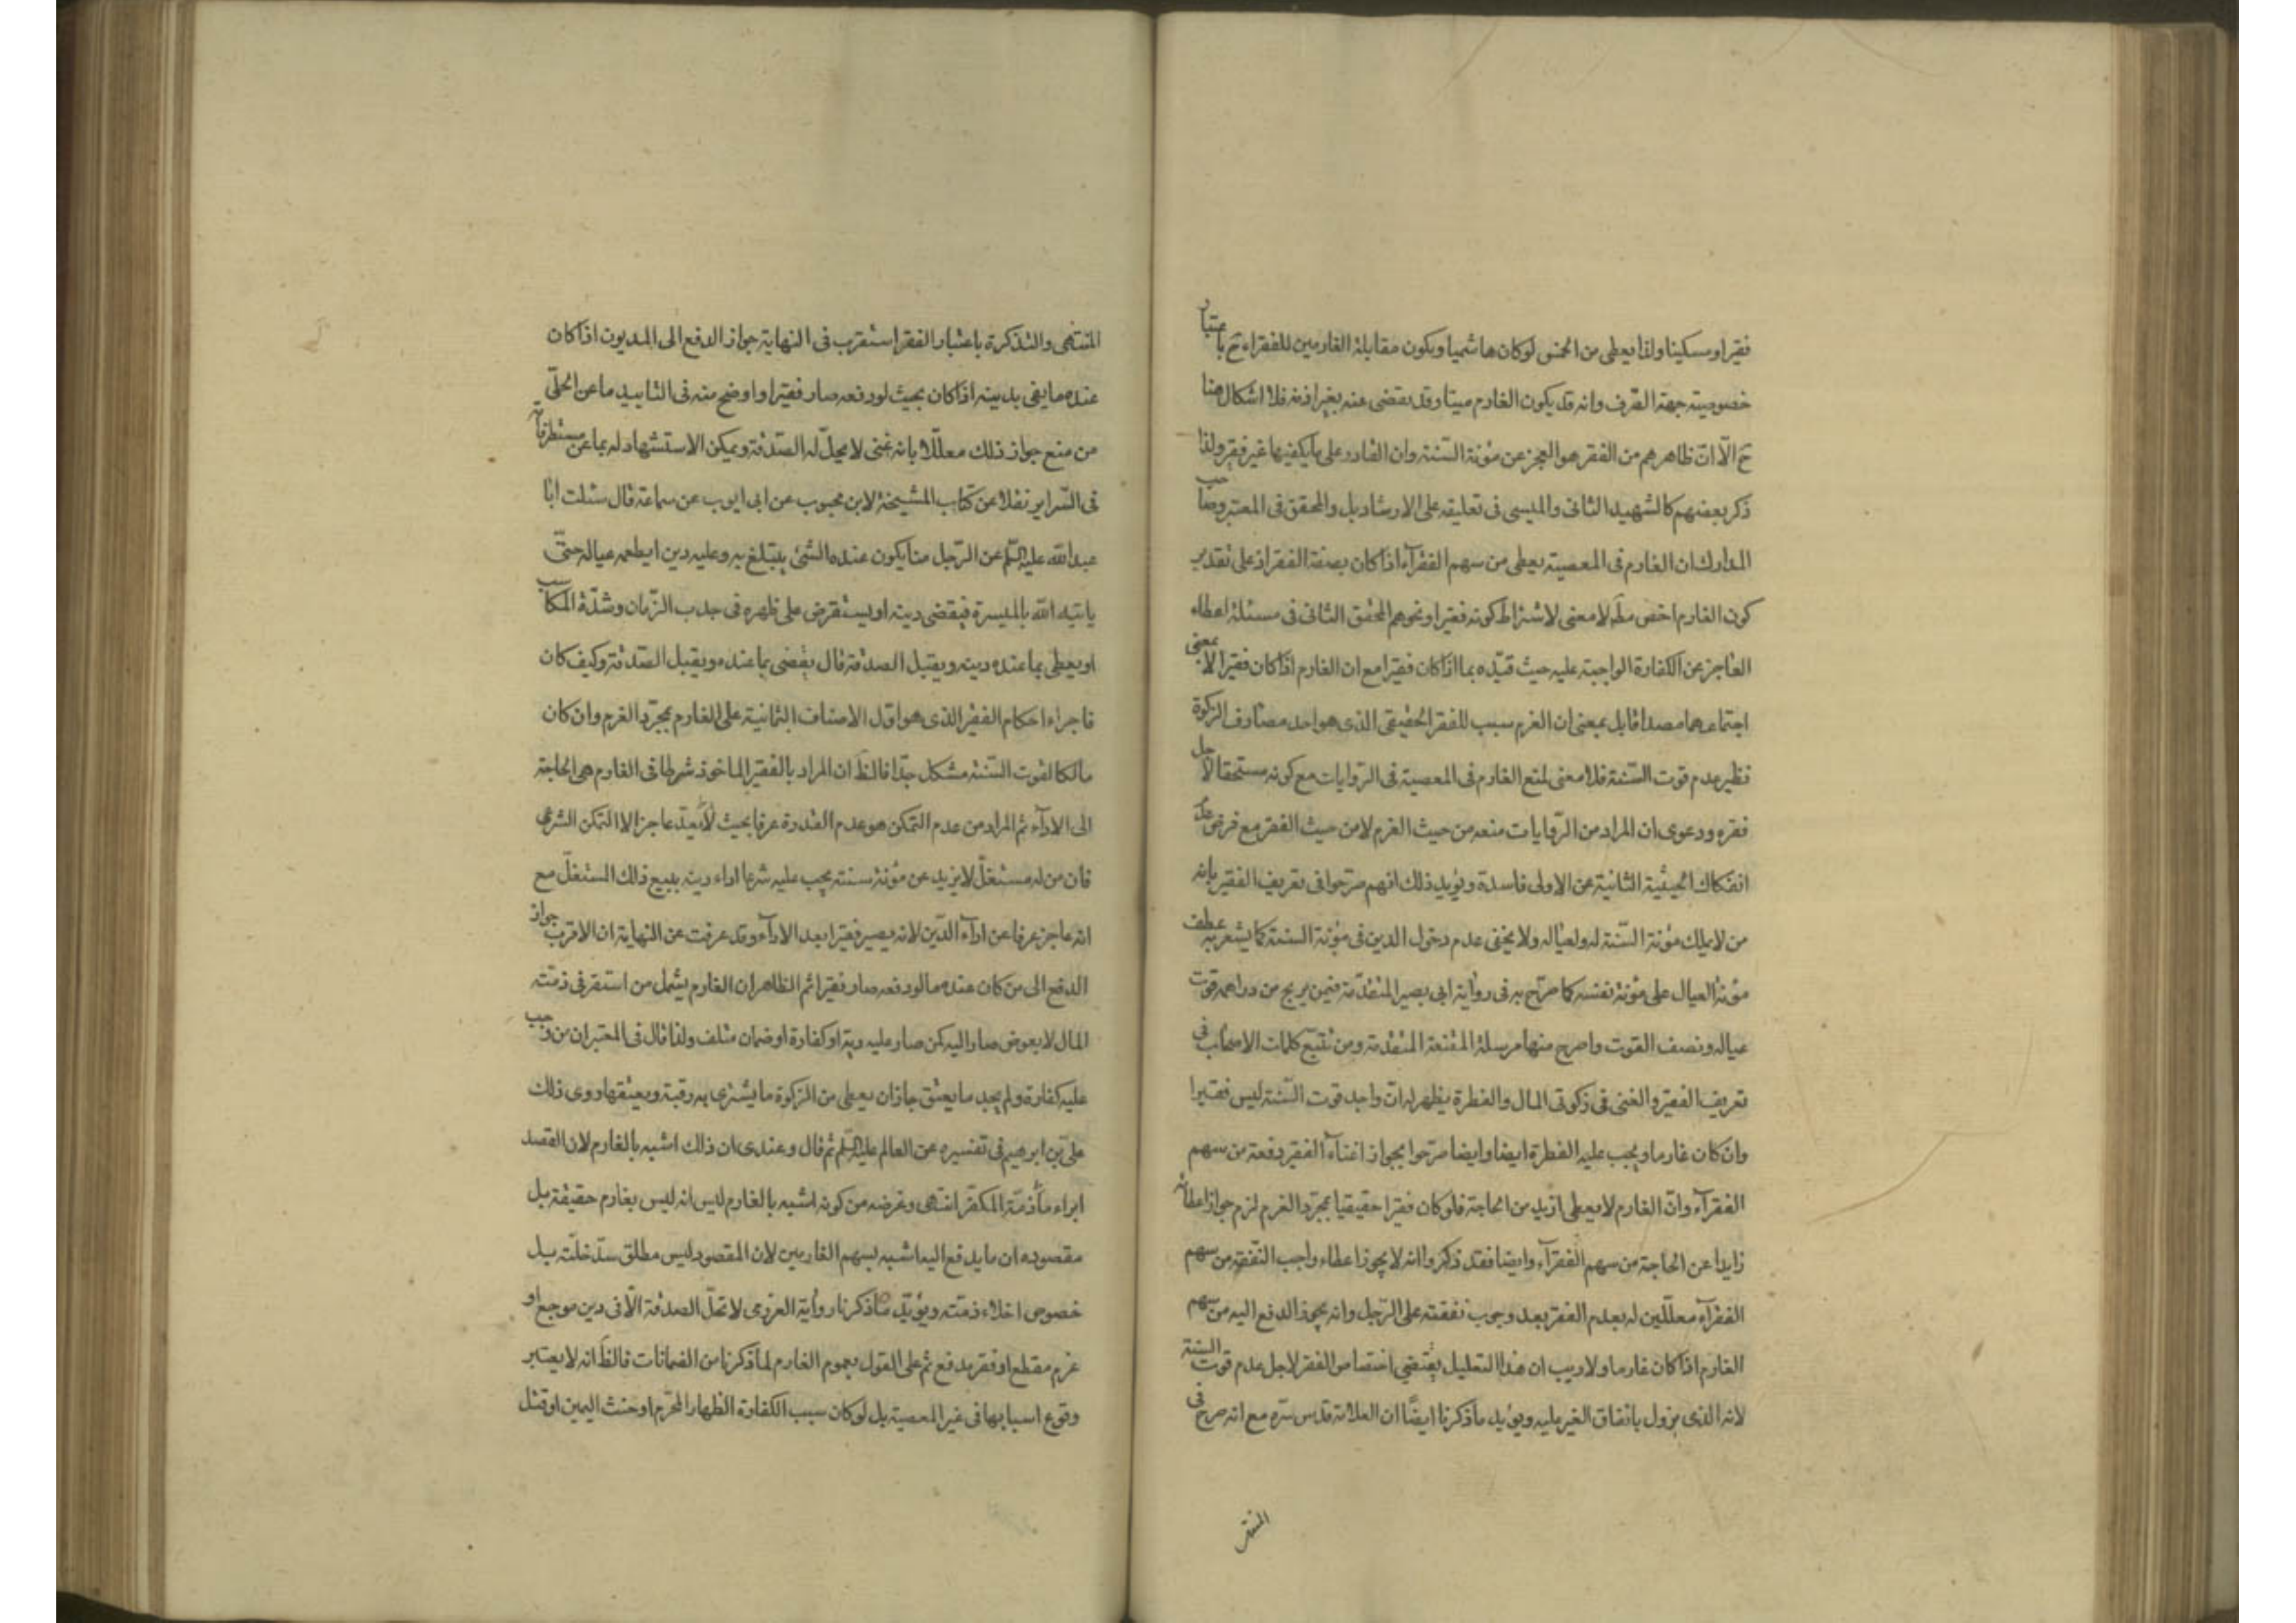 فقيرا ومسكينا ولذا يعطى من الخمس لوكان هاشميا ويكون مقابلة الغارمين للفقراء ح باعتبار
خصوصية جهة الصرف وانه قد يكون الغارم ميتا وقد يقضى عنه بغير اذنه فلا اشكال هنا
ح الّا انّ ظاهرهم من الفقر هو العجز عن مؤنة السّنة وان القادر على ما يكفيها غير فقير ولذا
ذكر بعضهم كالشهيد الثانى والميسى فى تعليقه على الارشاد بل والمحقق فى المعتبر وصاحب
المدارك ان الغارم فى المعصية يعطى من سهم الفقرآء اذا كان بصفة الفقر اذ على تقدير
كون الغارم اخص مط لا معنى لاشتراط كونه فقيرا ونحوهم المحقق الثانى فى مسئلة اعطاء
العاجز عن الكفارة الواجبة عليه حيث قيّده بما اذا كان فقيرا مع ان الغارم اذا كان فقيرا لا بمعنى
اجتماعهما مصداقا بل بمعنى ان الغرم سبب للفقر الحقيقى الذى هو احد مصارف الزكوة
نظير عدم قوت السّنة فلا معنى لمنع الغارم فى المعصية فى الرّوايات مع كونه مستحقا لاجل
فقره ودعوى ان المراد من الرّوايات منعه من حيث الغرم لا من حيث الفقر مع فرض عدم
انفكاك الحيثيّة الثانية عن الاولى فاسدة ويؤيد ذلك انهم صرّحوا فى تعريف الفقير بانه
من لا يملك مؤنة السّنة له ولعياله ولا يخفى عدم دخول الدين فى مؤنة السنة كما يشعر به عطف
مؤنة العيال على مؤنة نفسه كما صرّح به فى رواية ابى بصير المتقدّمة فيمن يربح من دراهمه قوت
عياله ونصف القوت واصرح منها مرسلة المقنعة المتقدمة ومن تتبّع كلمات الاصحاب فى
تعريف الفقير والغنى فى زكوتى المال والفطرة يظهر له انّ واجد قوت السّنة ليس فقيرا
وان كان غارما ويجب عليه الفطرة ايضا وايضا صرّحوا بجواز اغنآء الفقير دفعة من سهم
الفقرآء وانّ الغارم لا يعطى ازيد من الحاجة فلو كان فقيرا حقيقيا بمجرّد الغرم لزم جواز اعطائه
زايدا عن الحاجة من سهم الفقرآء وايضا فقد ذكروا انه لا يجوز اعطاء واجب النّفقة من سهم
الفقرآء معلّلين له بعدم الفقر بعد وجوب نفقته على الرّجل وانه يجوز الدفع اليه من سهم
الغارم اذا كان غارما ولا ريب ان هذا التعليل يقتضى اختصاص الفقر لاجل عدم قوت السنة
لانه الذى يزول بانفاق الغير عليه ويؤيد ما ذكرنا ايضًا ان العلامة قدس سرّه مع انه صرح فى
المنتهى
المنتهى والتذكرة باعتبار الفقر استقرب فى النهاية جواز الدفع الى المديون اذا كان
عنده ما يفى بدينه اذا كان بحيث لو دفعه صار فقيرا واوضح منه فى التاييد ما عن الحلّى
من منع جواز ذلك معلّلا بانه غنى لا يحلّ له الصّدقة ويمكن الاستشهاد له بما عن مستطرفات
فى السّراير نقلا عن كتاب المشيخة لابن محبوب عن ابى ايوب عن سماعة قال سئلت ابا
عبد الله عليه السّلم عن الرّجل منا يكون عنده الشئ يتبلغ به وعليه دين ايطعمه عياله حتّى
ياتيه الله بالميسرة فيقضى دينه او يستقرض على ظهره فى جدب الزّمان وشدّة المكاسب
او يعطى بما عنده دينه ويقبل الصدقة قال يقضى بما عنده ويقبل الصّدقة وكيف كان
فاجراء احكام الفقير الذى هو اوّل الاصناف الثمانية على الغارم بمجرّد الغرم وان كان
مالكا لقوت السّنة مشكل جدّا فالظ ان المراد بالفقير الماخوذ شرطا فى الغارم هى الحاجة
الى الادآء ثم المراد من عدم التمكن هو عدم القدرة عرفا بحيث لا يعدّ عاجزا لا التمكن الشرعى
فان من له مستغلّ لا يزيد عن مؤنة سنته يجب عليه شرعا اداء دينه ببيع ذلك المستغلّ مع
انه عاجز عرفا عن ادآء الدّين لانه يصير فقيرا بعد الادآء وقد عرفت عن النهاية ان الاقرب جواز
الدفع الى من كان عنده ما لو دفعه صار فقيرا ثم الظاهر ان الغارم يشمل من استقر فى ذمّته
المال لا بعوض صار اليه كمن صار عليه دية او كفارة او ضمان متلف ولذا قال فى المعتبر ان من وجب
عليه كفارة ولم يجد ما يعتق جاز ان يعطى من الزكوة ما يشترى به رقبة ويعتقها وروى ذلك
علىّ بن ابرهيم فى تفسيره عن العالم عليه السّلم ثم قال وعندى ان ذلك اشبه بالغارم لان القصد
ابراء ما ذمّة المكفّر انتهى وغرضه من كونه اشبه بالغارم ليس انه ليس بغارم حقيقة بل
مقصوده ان ما يدفع اليه اشبه بسهم الغارمين لان المقصود ليس مطلق سدّ خلّته بل
خصوص اخلاء ذمّته ويؤيّد ما ذكرنا رواية العزرمى لا تحلّ الصدقة الّا فى دين موجع او
غرم مقطع او فقر مدقع ثم على القول بعموم الغارم لما ذكرنا من الضمانات فالظ انه لا يعتبر
وقوع اسبابها فى غير المعصية بل لو كان سبب الكفارة الظهار المحّرم او حنث اليمين او قتل